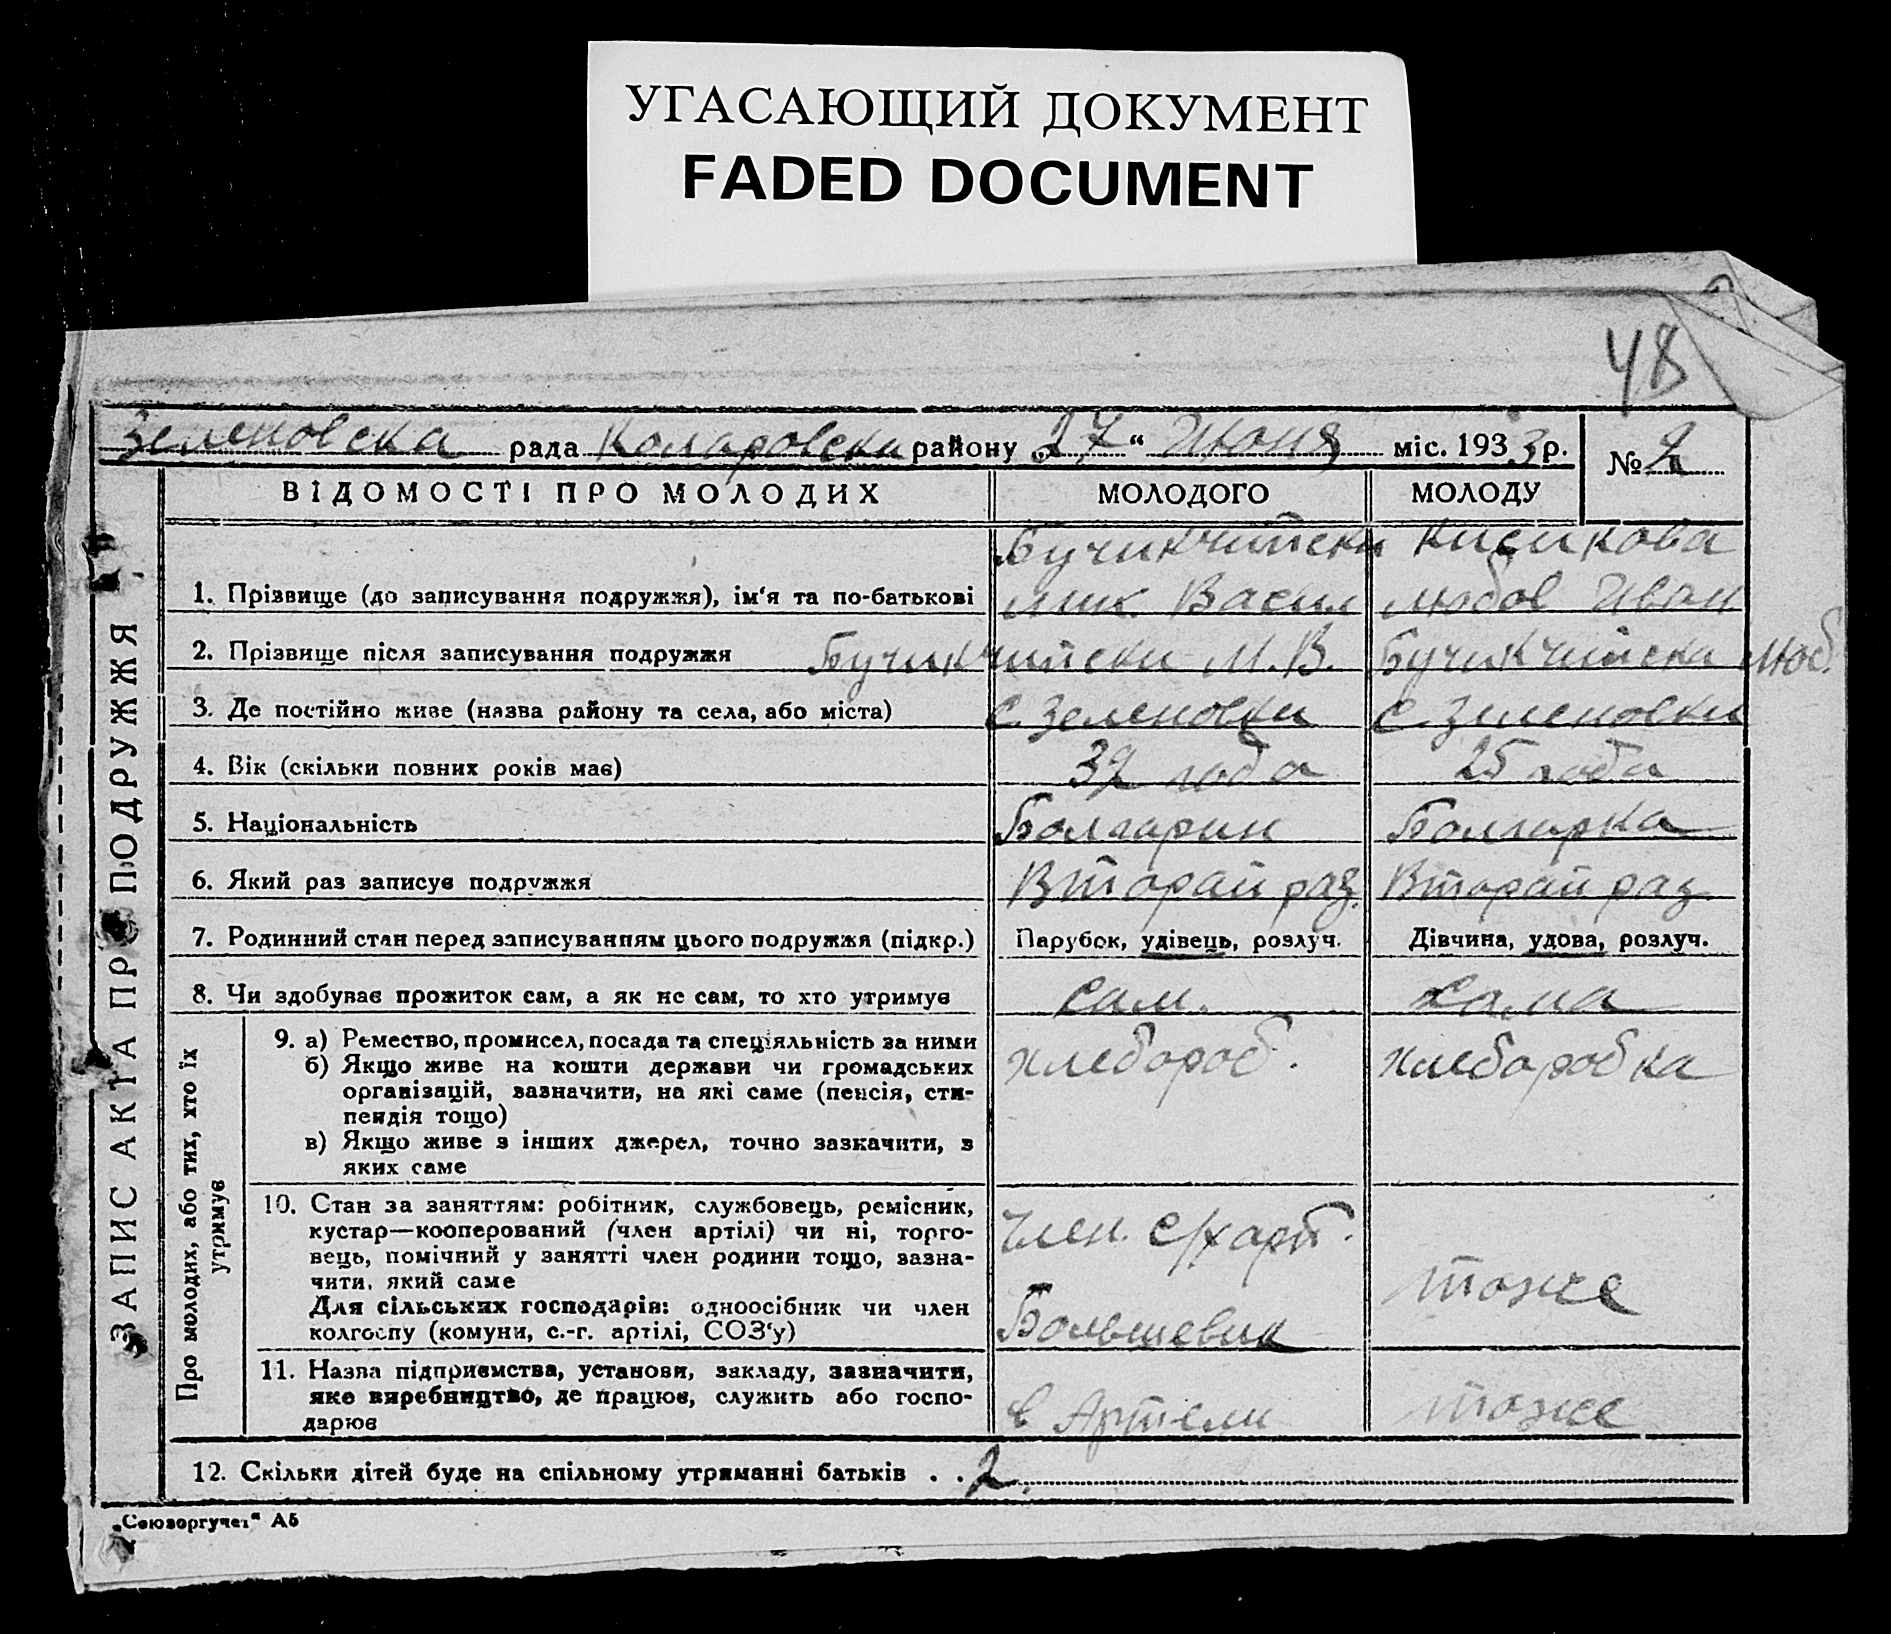 УГАСАЮЩИЙ ДОКУМЕНТ
FADED DOCUMENT
48
Зеленовска рада Коларовски району „27“ Июня міс. 1933 р. № 2
ВІДОМОСТІ ПРО МОЛОДИХ МОЛОДОГО МОЛОДУ
Бучикчийски Кисикова
1. Прізвище (до записування подружжя), ім'я та по-батькові Мих. Васил Любов Иван
2. Прізвище після записування подружжя Бучикчийски М. В. Бучикчийска Люб.
3. Де постійно живе (назва району та села, або міста) с. Зеленовки с. Зеленовки
4. Вік (скільки повних років має) 32 года 25 года
5. Національність Болгарин Болгарка
6. Який раз записує подружжя Вторай раз. Вторай раз.
7. Родинний стан перед записуванням цього подружжя (підкр.) Парубок, удівець, розлуч. Дівчина, удова, розлуч.
8. Чи здобуває прожиток сам, а як не сам, то хто утримує сам. сама
Про молодих, або тих, хто їх утримує
9. а) Ремество, промисел, посада та спеціяльність за ними хлебороб. хлеборобка
б) Якщо живе на кошти держави чи громадських
організацій, зазначити, на які саме (пенсія, сти-
пендія тощо)
в) Якщо живе з інших джерел, точно зазкачити, з
яких саме
10. Стан за заняттям: робітник, службовець, ремісник,
кустар—кооперований (член артілі) чи ні, торго- член. с/х арт.
вець, помічний у занятті член родини тощо, зазна-
чити, який саме тоже
Для сільських господарів: одноосібник чи член
колгоспу (комуни, с.-г. артілі, СОЗ'у) Большевик
11. Назва підприємства, установи, закладу, зазначити,
яке виребництво, де працює, служить або госпо- в Артели тоже
дарює
12. Скільки дітей буде на спільному утриманні батьків . . 2
ЗАПИС АКТА ПРО ПОДРУЖЖЯ
„Союзоргучет“ А5